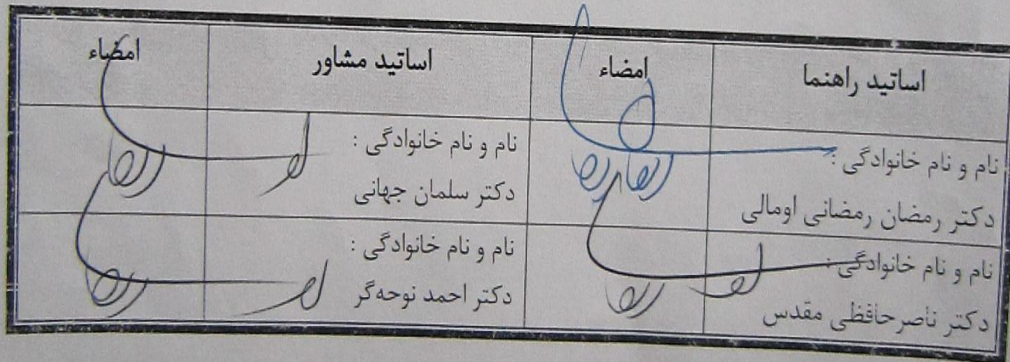 اساتید راهنما
امضاء
اساتید مشاور
امضاء
نام و نام خانوادگی :
دکتر رمضان رمضانی اومالی
نام و نام خانوادگی :
دکتر سلمان جهانی
نام و نام خانوادگی :
دکتر ناصرحافظی مقدس
نام و نام خانوادگی :
دکتر احمد نوحه‌گر